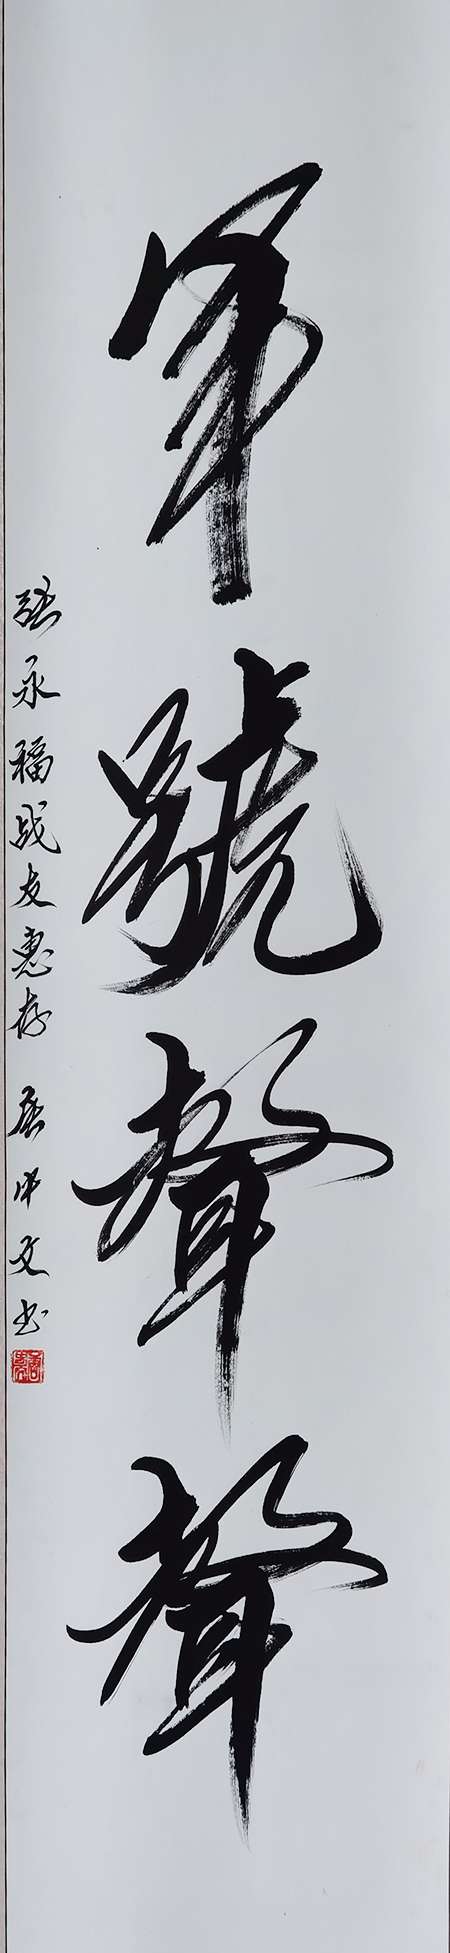 军號聲聲
张永福战友惠存 唐中文书